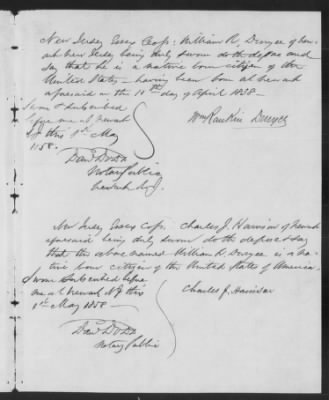 New Jersey Essex Co ss: William R. Duryee of New
ark New Jersey being duly sworn doth depose and
say that he is a native born citizen of the
United States – having been born at Newark
aforesaid on the 10th day of April 1838 –
Sworn & subscribed
before me at Newark
NJ this 1st May
1858.
Wm Rankin Duryee
Danl Dodd
Notary Public
Newark N.J.
New Jersey Essex Co ss. Charles J. Harrison of Newark
aforesaid being duly sworn doth depose & say
that the above named William R. Duryee is a na-
tive born citizen of the United States of America.
Sworn & subscribed before
me at Newark NJ this
1st May 1858 –
Charles J. Harrison
Danl Dodd
Notary Public